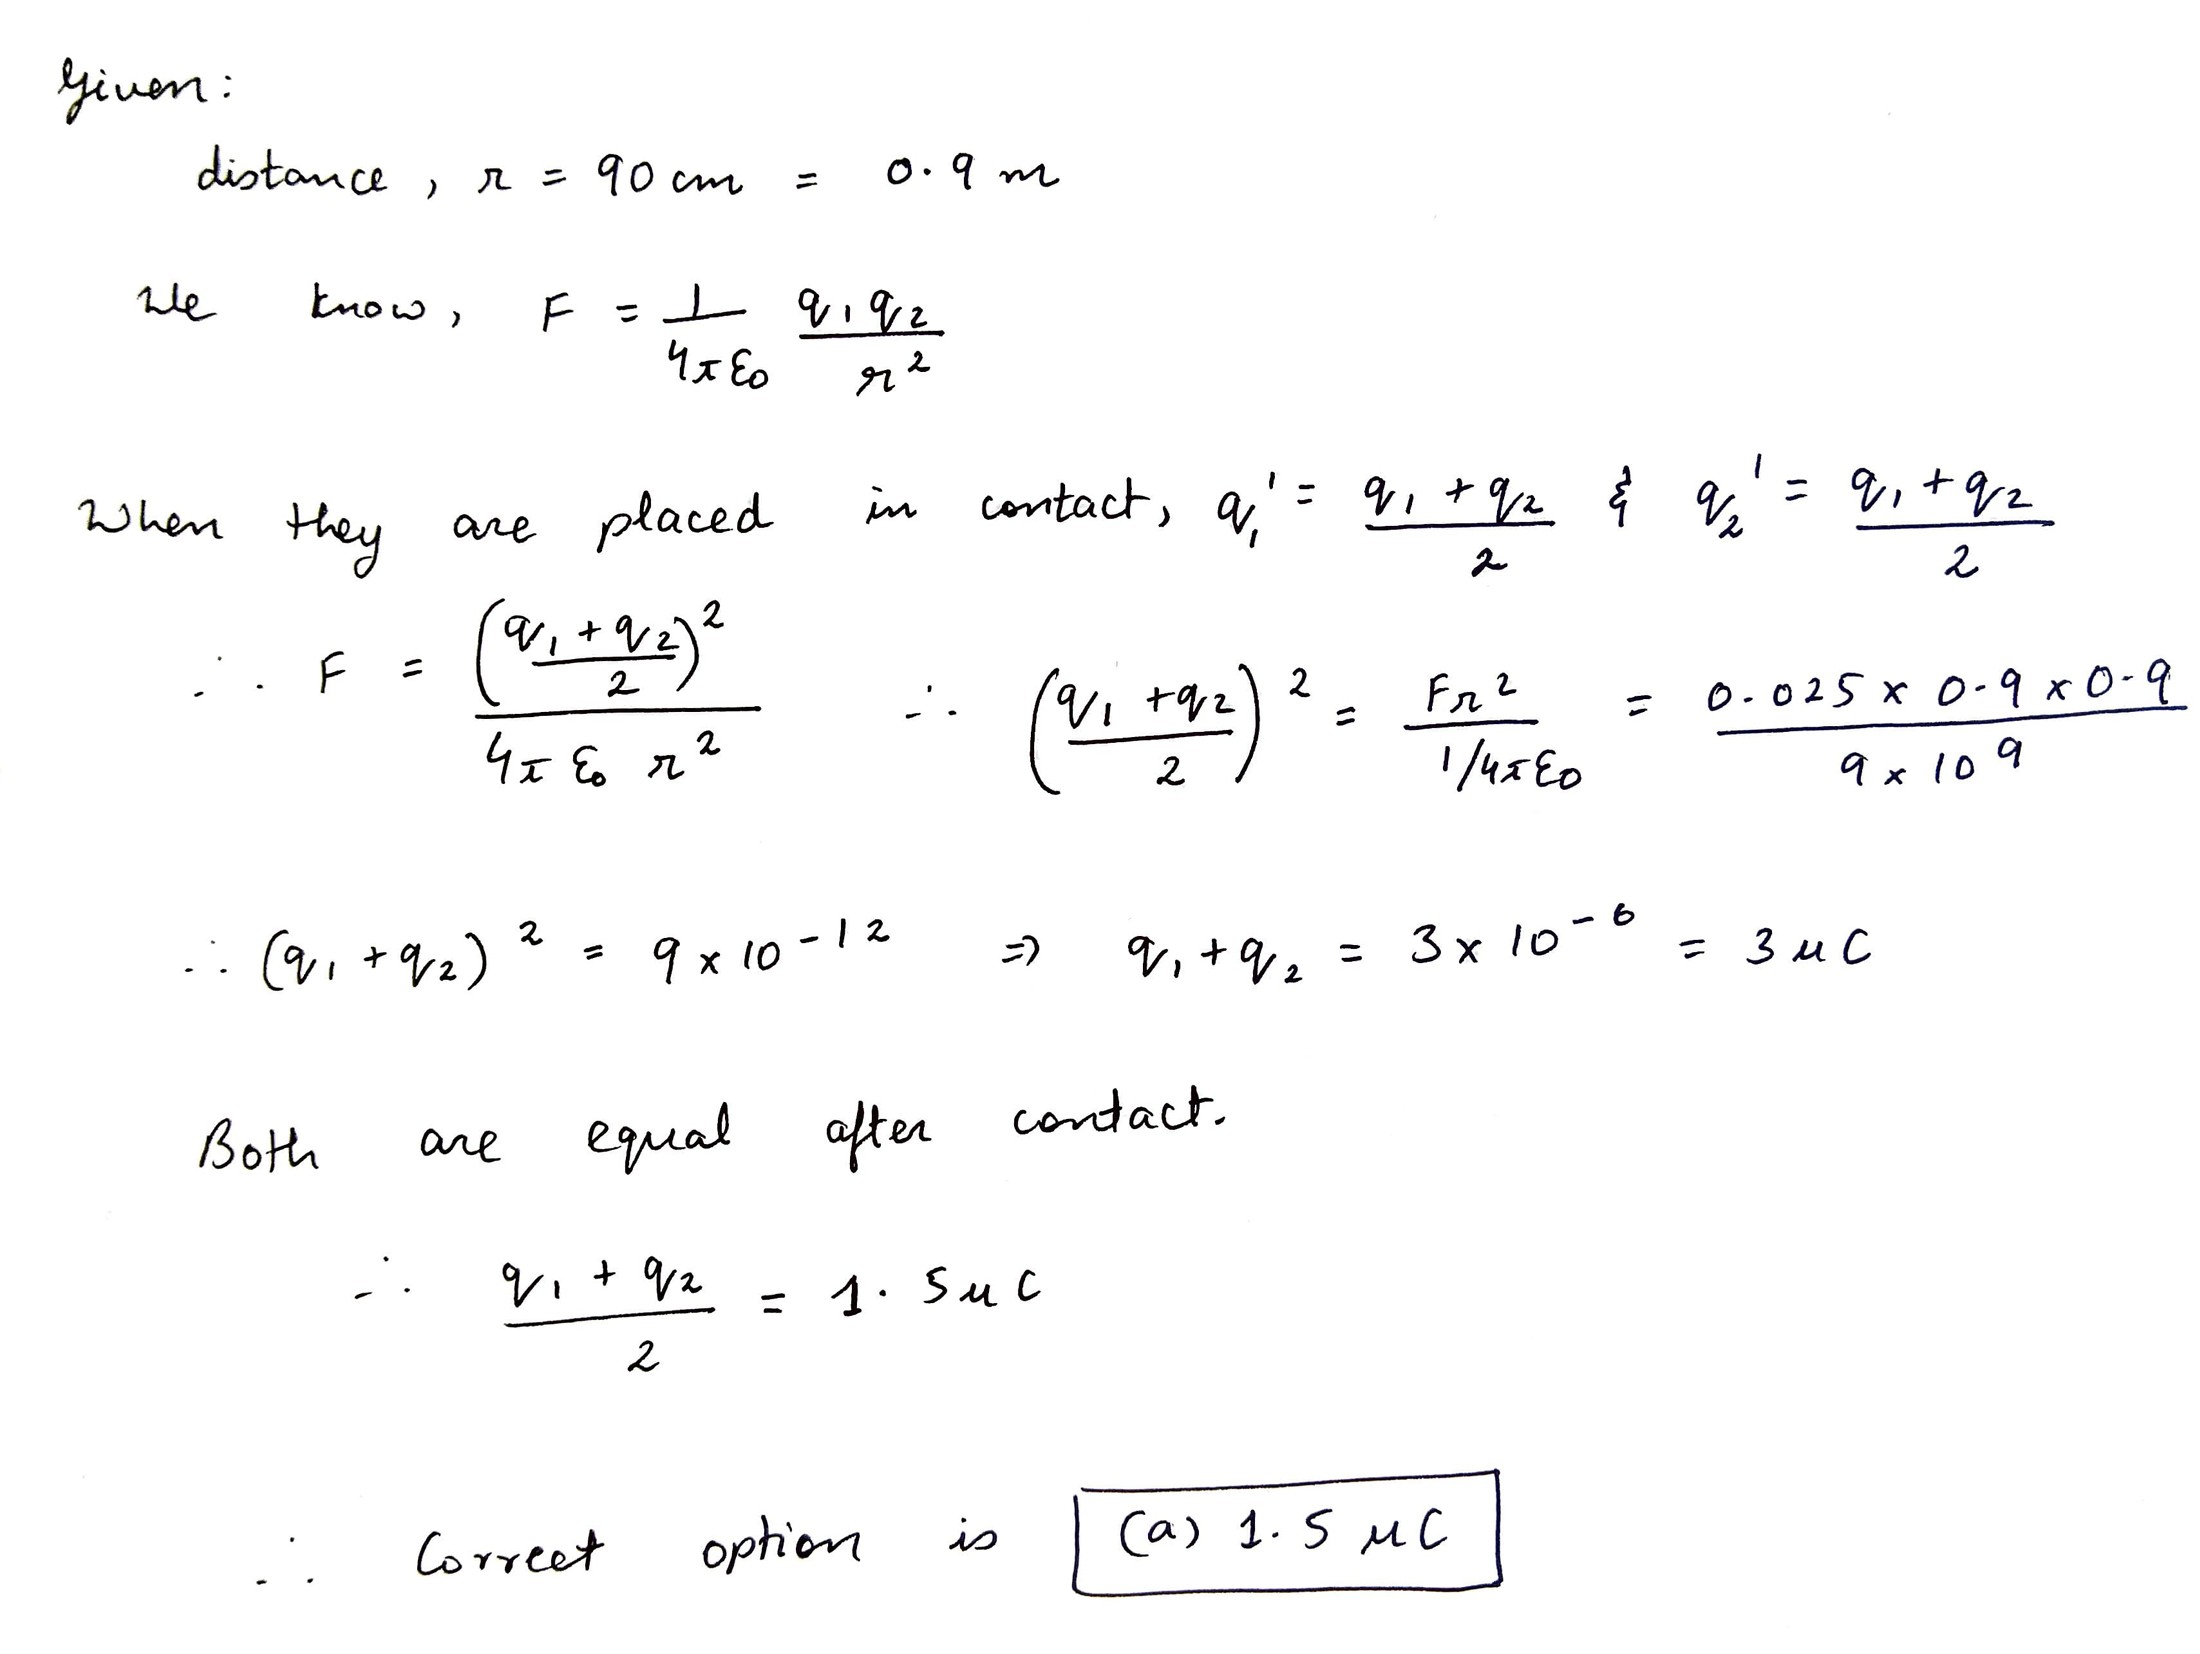 Given:
distance, r = 90 cm = 0.9 m
We know, F = 1/4πε0 q1q2/r²
When they are placed in contact, q1' = q1+q2/2 & q2' = q1+q2/2
∴ F = (q1+q2/2)²/4πε0 r² ∴ (q1+q2/2)² = Fr²/1/4πε0 = 0.025 x 0.9 x 0.9/9 x 10⁹
∴ (q1+q2)² = 9 x 10⁻¹² ⇒ q1+q2 = 3 x 10⁻⁶ = 3 μC
Both are equal after contact.
∴ q1+q2/2 = 1.5 μC
∴ Correct option is (a) 1.5 μC